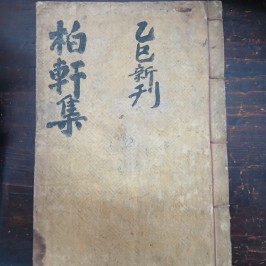 乙巳新刊
柏軒集